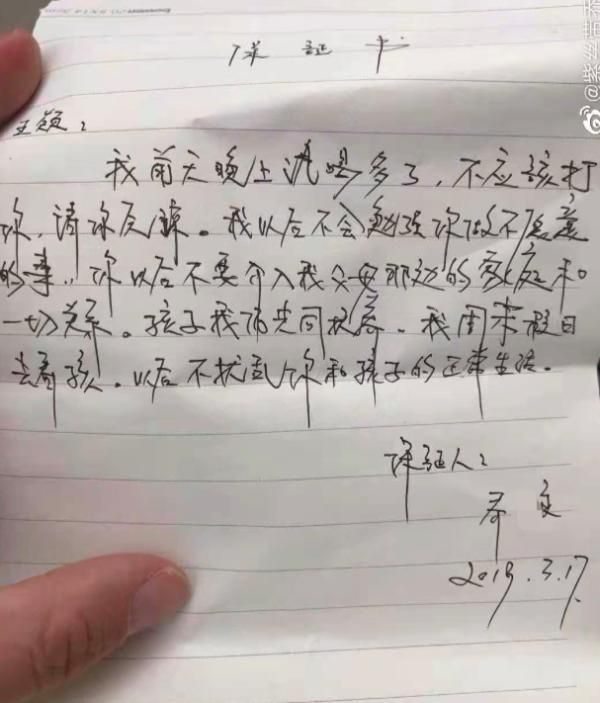 保证书
王颖：
我前天晚上酒喝多了，不应该打
你，请你原谅。我以后不会勉强你做不愿意
的事，你以后不要介入我父母那边的家庭和
一切关系。孩子我们共同抚养。我周末假日
去看孩。以后不扰乱你和孩子的正常生活。
保证人：
2019.3.17.